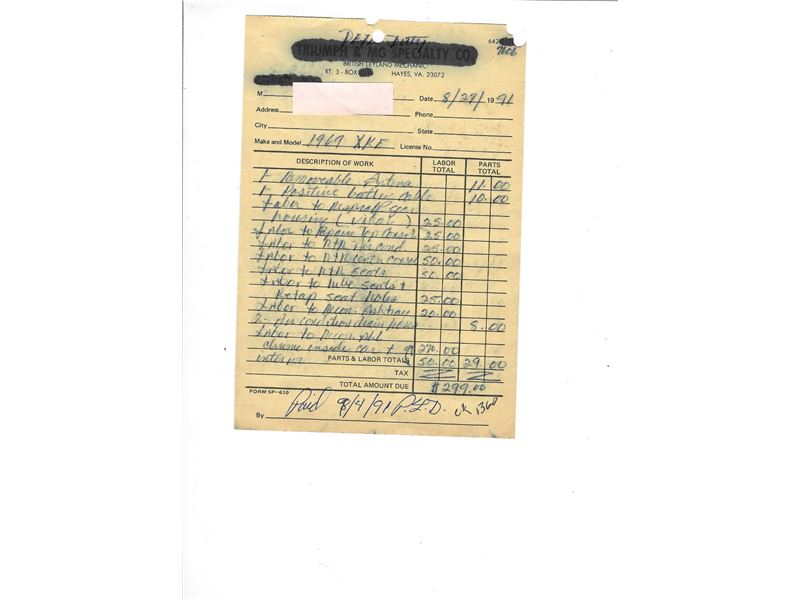 642
TRIUMPH & MG SPECIALTY CO.
7606
BRITISH LEYLAND MECHANIC
RT. 3 - BOX HAYES, VA. 23072
M
Date 8/29/ 19 91
Address
Phone
City
State
Make and Model 1969 XKE License No.
DESCRIPTION OF WORK LABOR TOTAL PARTS TOTAL
1- Removeable Antena 11.00
1- Positive battery cable 10.00
Labor to Respray gear
housing ( ) 25.00
Labor to Repaire Top Consol 25.00
Labor to R+R Air cond. 25.00
Labor to R+R centr consol 50.00
Labor to R+R seats 50.00
Labor to lube seats +
Retap seat holes 25.00
Labor to Recon. Ashtray 20.00
2- Air condition drain hoses 8.00
Labor to Recon. All
chrome inside car + 270.00
interior PARTS & LABOR TOTALS 50.00 29 00
TAX
TOTAL AMOUNT DUE $299.00
FORM SP-630
By Paid 9/4/91 P.L.D. ck 1360